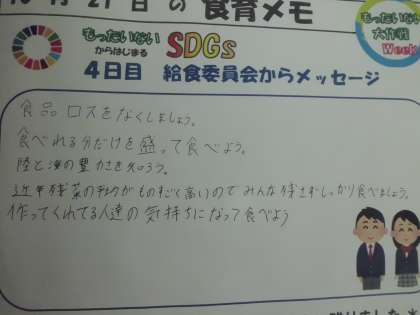 月21日の食育メモ
もったいない
からはじまる SDGs
もったいない
大作戦
Week
4日目 給食委員会からメッセージ
食品ロスをなくしましょう。
食べれる分だけを盛って食べよう。
陸と海の豊かさを知ろう。
近年残菜の率がものすごく高いのでみんな残さずしっかり食べましょう。
作ってくれてる人達の気持ちになって食べよう